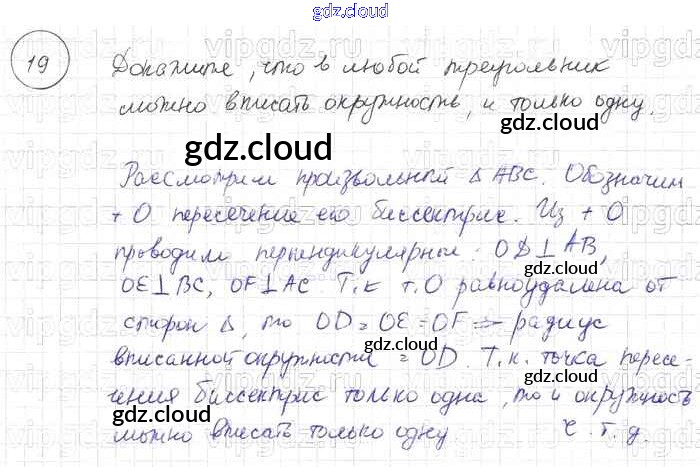 gdz.cloud
19
Докажите, что в любой треугольник
можно вписать окружность, и только одну.
gdz.cloud
gdz.cloud
Рассмотрим произвольный Δ ABC. Обозначим
т O пересечение его биссектрис. Из т O
проводим перпендикуляры: OD⊥AB,
gdz.cloud
OE⊥BC, OF⊥AC Т.к т.O равноудалена от
gdz.cloud
сторон Δ, то OD=OE=OF => радиус
вписанной окружности = OD. Т.к. точка пересе-
gdz.cloud
чения биссектрис только одна, то и окружность
gdz.cloud
gdz.cloud
можно вписать только одну ч.т.д.